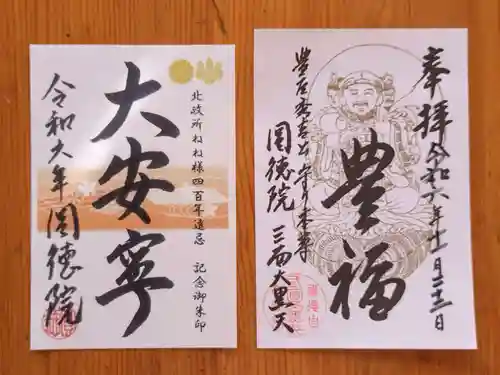 北政所ねね様四百年遠忌 記念御朱印
大安寧
令和六年 圓徳院
奉拝 令和六年十一月二十三日
豊福
豊臣秀吉出世守り本尊
圓徳院 三面大黒天